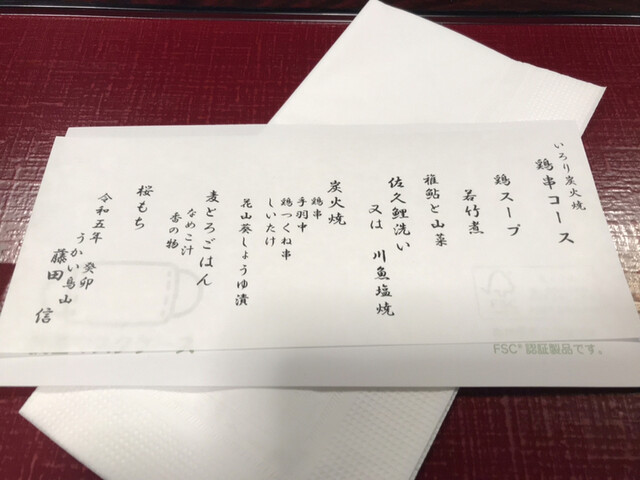 いろり炭火焼
鶏串コース
鶏スープ
若竹煮
稚鮎と山菜
佐久鯉洗い
又は 川魚塩焼
炭火焼
鶏串
手羽中
鶏つくね串
しいたけ
花山葵しょうゆ漬
麦とろごはん
なめこ汁
香の物
桜もち
令和五年 癸卯
うかい鳥山
藤田 信
FSC® 認証製品です。